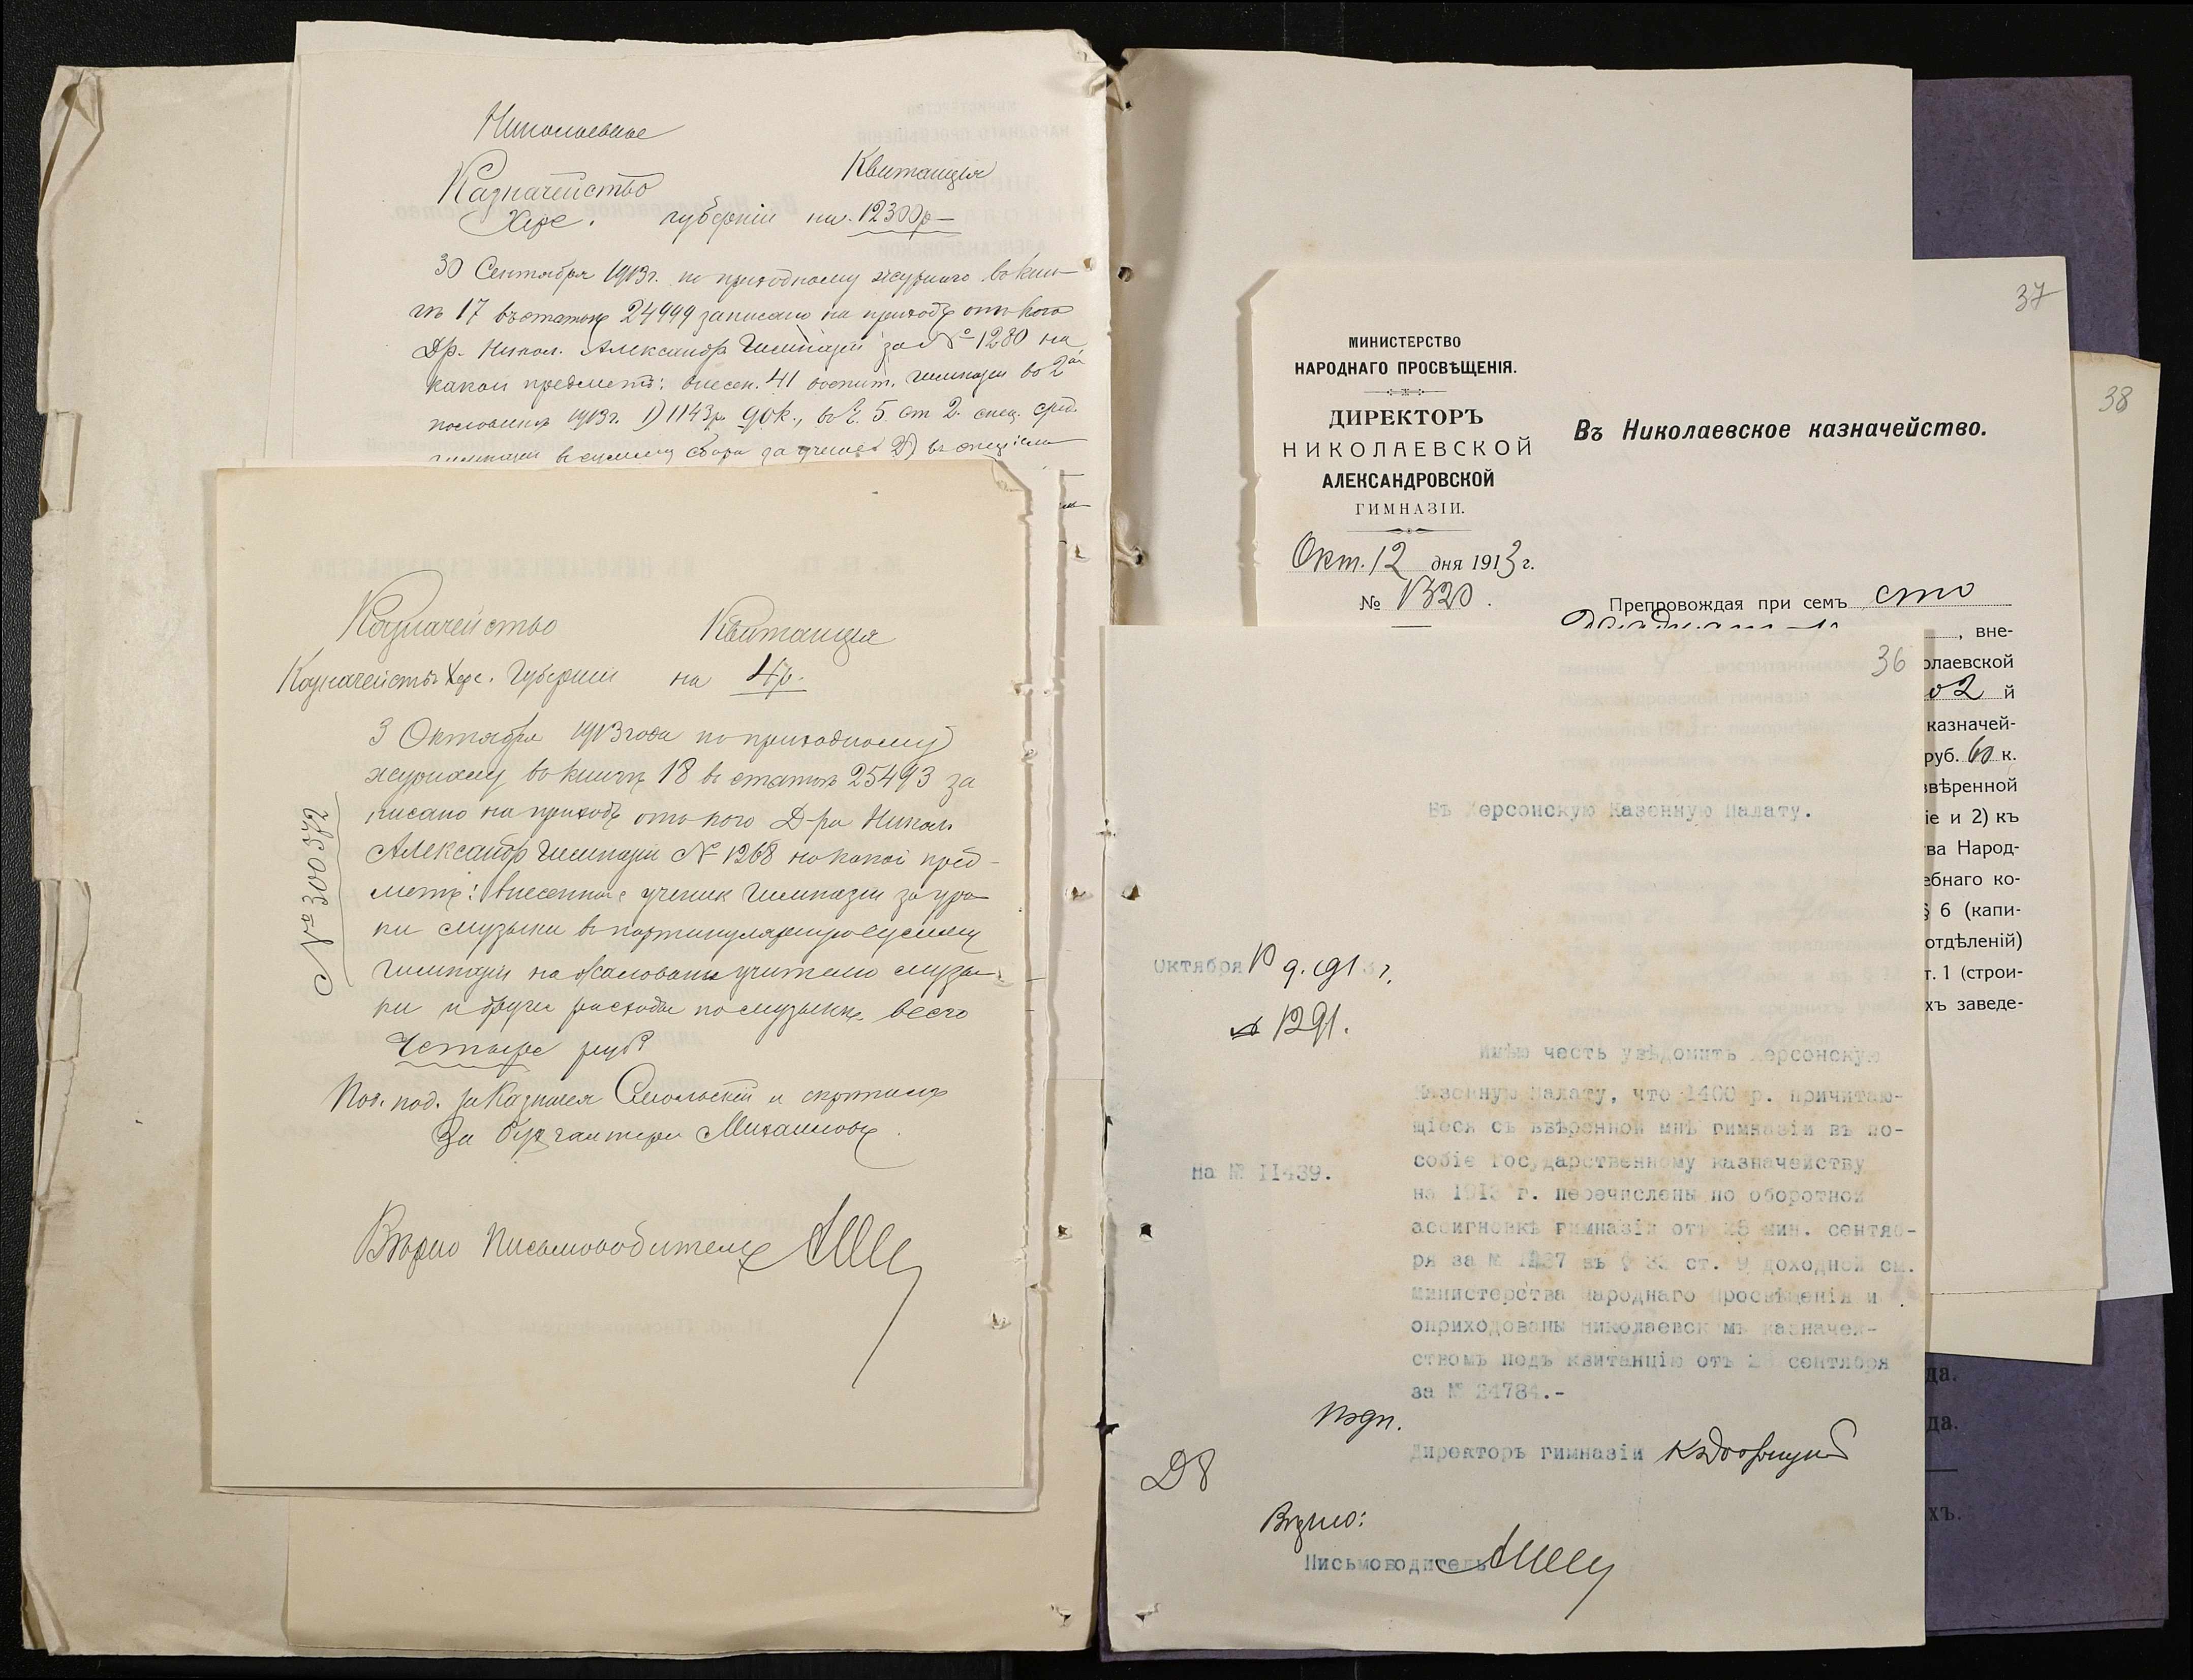 Николаевское
Казначейство
Квитанція
Херс. губерніи на 12300р—
30 Сентября 1913г. по приходному журналу въ кни-
гѣ 17 въ статью 24999 записано на приходъ отъ кого
Др. Никол. Александр Гимназіи за № 1280 на
какой предметъ: внесен. 41 воспит. гимназіи во 2ой
половинѣ 1913г. 1) 1143р. 90к., въ § 5 ст 2. спец. сред.
гимназіи въ сумму сбора за ученіе 2) въ
Казначейство
Квитанція
Казначейство Херс. Губерніи на 4р.
3 Октября 1913 года по приходному
журналу въ книгѣ 18 въ статью 25493 за
писано на приходъ отъ кого Д-ра Никол.
Александр Гимназіи № 1268 на какой пред-
метъ: внесенные ученик Гимназіи за уро
ки музыки въ партикулярную сумму
гимназіи на жалованье учителю музы-
ки и другіе расходы по музыкѣ всего
Четыре руб
№ 300572
Под. под. за Казначея и скрѣпилъ
За бухгалтера Михаиловъ.
Вѣрно Письмоводитель
37
38
МИНИСТЕРСТВО
НАРОДНАГО ПРОСВѢЩЕНІЯ.
ДИРЕКТОРЪ
НИКОЛАЕВСКОЙ
АЛЕКСАНДРОВСКОЙ
ГИМНАЗІИ.
Окт. 12 дня 1913 г.
№ 1320.
Въ Николаевское казначейство.
Препровождая при семъ сто
, вне-
олаевской
о 2 й
казначей-
руб. 60 к.
ввѣренной
іе и 2) къ
ва Народ-
ебнаго ко-
§ 6 (капи-
отдѣленій)
т. 1 (строи-
хъ заведе-
да.
да.
хъ.
36
Въ Херсонскую Казенную Палату.
Октября 10 д. 1913 г.
№ 1291.
На № 11439.
Имѣю честь увѣдомить Херсонскую
Казенную Палату, что 1400 р. причитаю-
щіеся съ ввѣренной мнѣ гимназіи въ по-
собіе Государственному казначейству
на 1913 г. перечислены по оборотной
ассигновкѣ гимназіи отъ 28 мин. сентяб-
ря за № 1267 въ § 33 ст. 9 доходной см.
Министерства Народнаго Просвѣщенія и
оприходованы Николаевскимъ казначей-
ствомъ подъ квитанцію отъ сентября
за № 24784.-
Подп.
Директоръ гимназіи
Д8
Вѣрно:
Письмоводитель